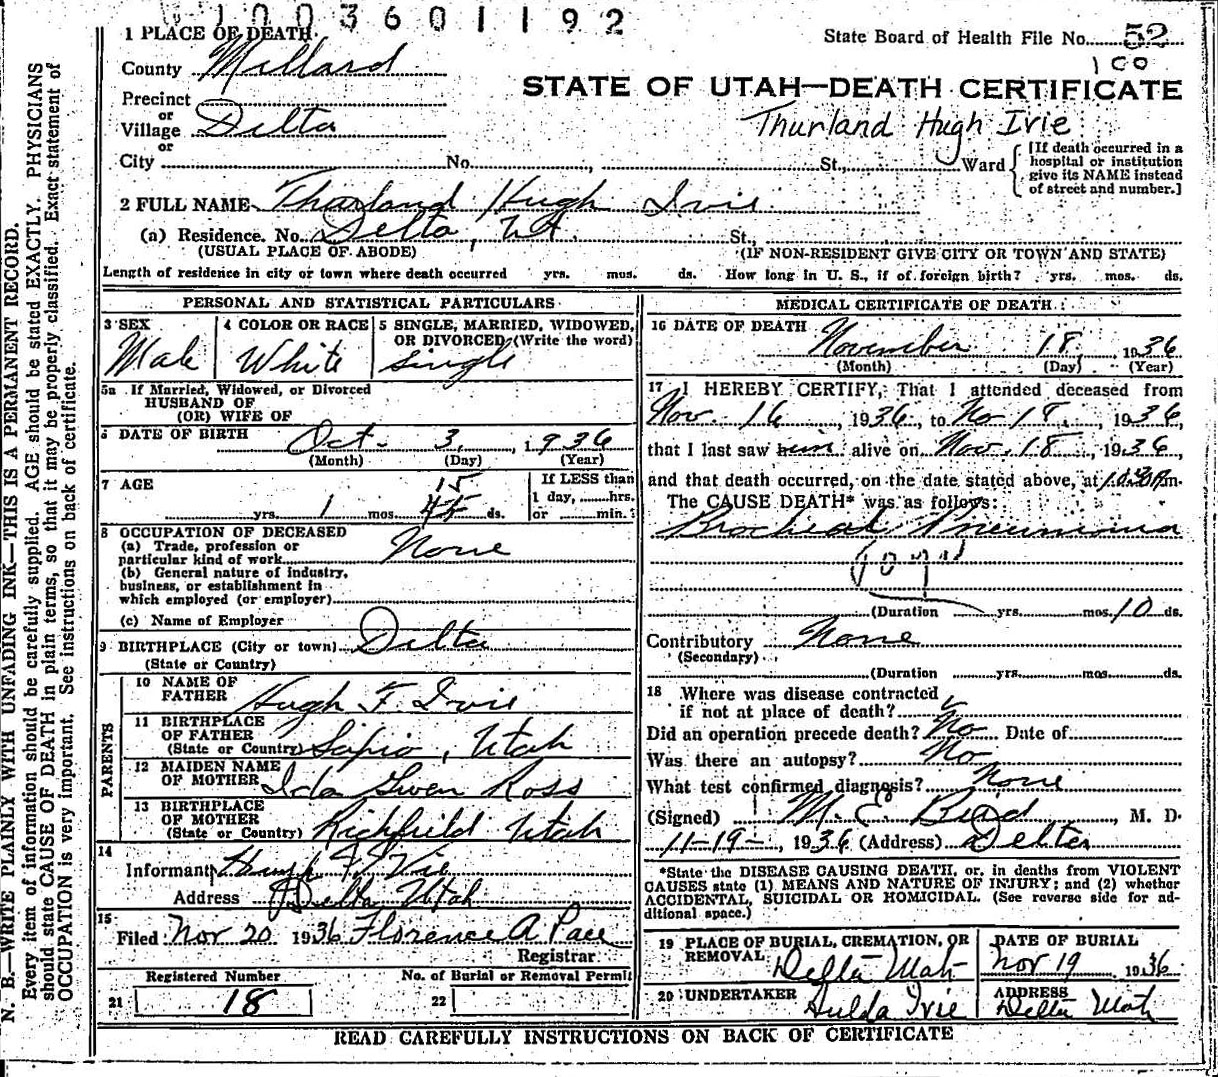 1003601192
State Board of Health File No. 52
100
STATE OF UTAH—DEATH CERTIFICATE
Thurland Hugh Ivie
1 PLACE OF DEATH
County Millard
Precinct
or
Village Delta
or
City No. , St., Ward
[If death occurred in a
hospital or institution
give its NAME instead
of street and number.]
2 FULL NAME Thurland Hugh Ivie
(a) Residence. No. Delta, Ut. St.,
(USUAL PLACE OF ABODE) (IF NON-RESIDENT GIVE CITY OR TOWN AND STATE)
Length of residence in city or town where death occurred yrs. mos. ds. How long in U. S., if of foreign birth? yrs. mos. ds.
PERSONAL AND STATISTICAL PARTICULARS
3 SEX
Male
4 COLOR OR RACE
White
5 SINGLE, MARRIED, WIDOWED,
OR DIVORCED (Write the word)
Single
5a If Married, Widowed, or Divorced
HUSBAND OF
(OR) WIFE OF
6 DATE OF BIRTH Oct. 3, 1936
(Month) (Day) (Year)
7 AGE 15
yrs. 1 mos. 45 ds.
If LESS than
1 day, hrs.
or min.
8 OCCUPATION OF DECEASED
(a) Trade, profession or
particular kind of work None
(b) General nature of industry,
business, or establishment in
which employed (or employer)
(c) Name of Employer
9 BIRTHPLACE (City or town) Delta
(State or Country)
PARENTS
10 NAME OF
FATHER Hugh F. Ivie
11 BIRTHPLACE
OF FATHER
(State or Country) Sapio, Utah
12 MAIDEN NAME
OF MOTHER Ida Gwen Ross
13 BIRTHPLACE
OF MOTHER
(State or Country) Richfield Utah
14
Informant Hugh F. Ivie
Address Delta Utah
15
Filed Nov 20 1936 Florence A Pace
Registrar
Registered Number
21 18
No. of Burial or Removal Permit
22
MEDICAL CERTIFICATE OF DEATH
16 DATE OF DEATH
November 18, 1936
(Month) (Day) (Year)
17 I HEREBY CERTIFY, That I attended deceased from
Nov. 16, 1936, to No 18, 1936,
that I last saw him alive on Nov. 18, 1936,
and that death occurred, on the date stated above, at m.
The CAUSE DEATH* was as follows:
Brocheal Pneumonia
107
(Duration yrs. mos. 10 ds.
Contributory None
(Secondary)
(Duration yrs. mos. ds.
18 Where was disease contracted
if not at place of death?
Did an operation precede death? No Date of
Was there an autopsy? No
What test confirmed diagnosis? None
(Signed) M. E. Bird, M. D.
11-19-, 1936 (Address) Delta
*State the DISEASE CAUSING DEATH, or, in deaths from VIOLENT
CAUSES state (1) MEANS AND NATURE OF INJURY; and (2) whether
ACCIDENTAL, SUICIDAL OR HOMICIDAL. (See reverse side for ad-
ditional space.)
19 PLACE OF BURIAL, CREMATION, OR
REMOVAL Delta Utah
DATE OF BURIAL
Nov 19 1936
20 UNDERTAKER
Hulda Ivie
ADDRESS
Delta Utah
READ CAREFULLY INSTRUCTIONS ON BACK OF CERTIFICATE
N. B.—WRITE PLAINLY WITH UNFADING INK—THIS IS A PERMANENT RECORD.
Every item of information should be carefully supplied. AGE should be stated EXACTLY. PHYSICIANS
should state CAUSE OF DEATH in plain terms, so that it may be properly classified. Exact statement of
OCCUPATION is very important. See instructions on back of certificate.